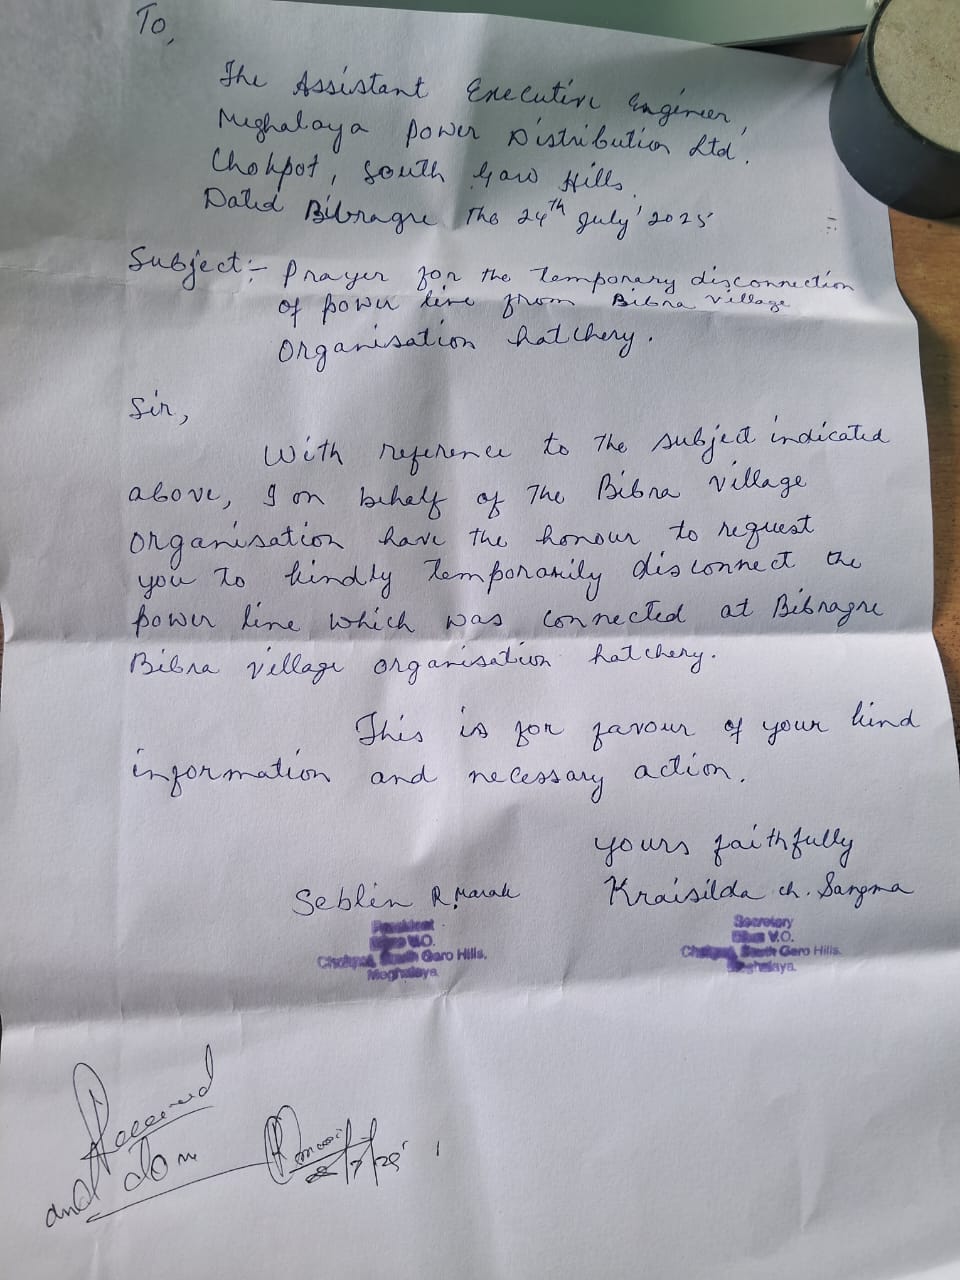 To,
The Assistant Executive Engineer,
Meghalaya Power Distribution Ltd.
Chokpot, South Garo Hills.
Dated Bibragre The 24th July' 2025
Subject:- Prayer for the temporary disconnection
of power line from Bibra Village
Organisation hatchery.
Sir,
With reference to the subject indicated
above, I on behalf of The Bibra Village
Organisation have the honour to request
you to kindly temporarily disconnect the
power line which was connected at Bibragre
Bibra Village organisation hatchery.
This is for favour of your kind
information and necessary action.
Yours faithfully
Seblin R. Marak
Kraisilda ch. Sangma
President
V.O.
Chokpot, South Garo Hills,
Meghalaya
Secretory
V.O.
Chokpot, South Garo Hills.
Meghalaya.
Received
and